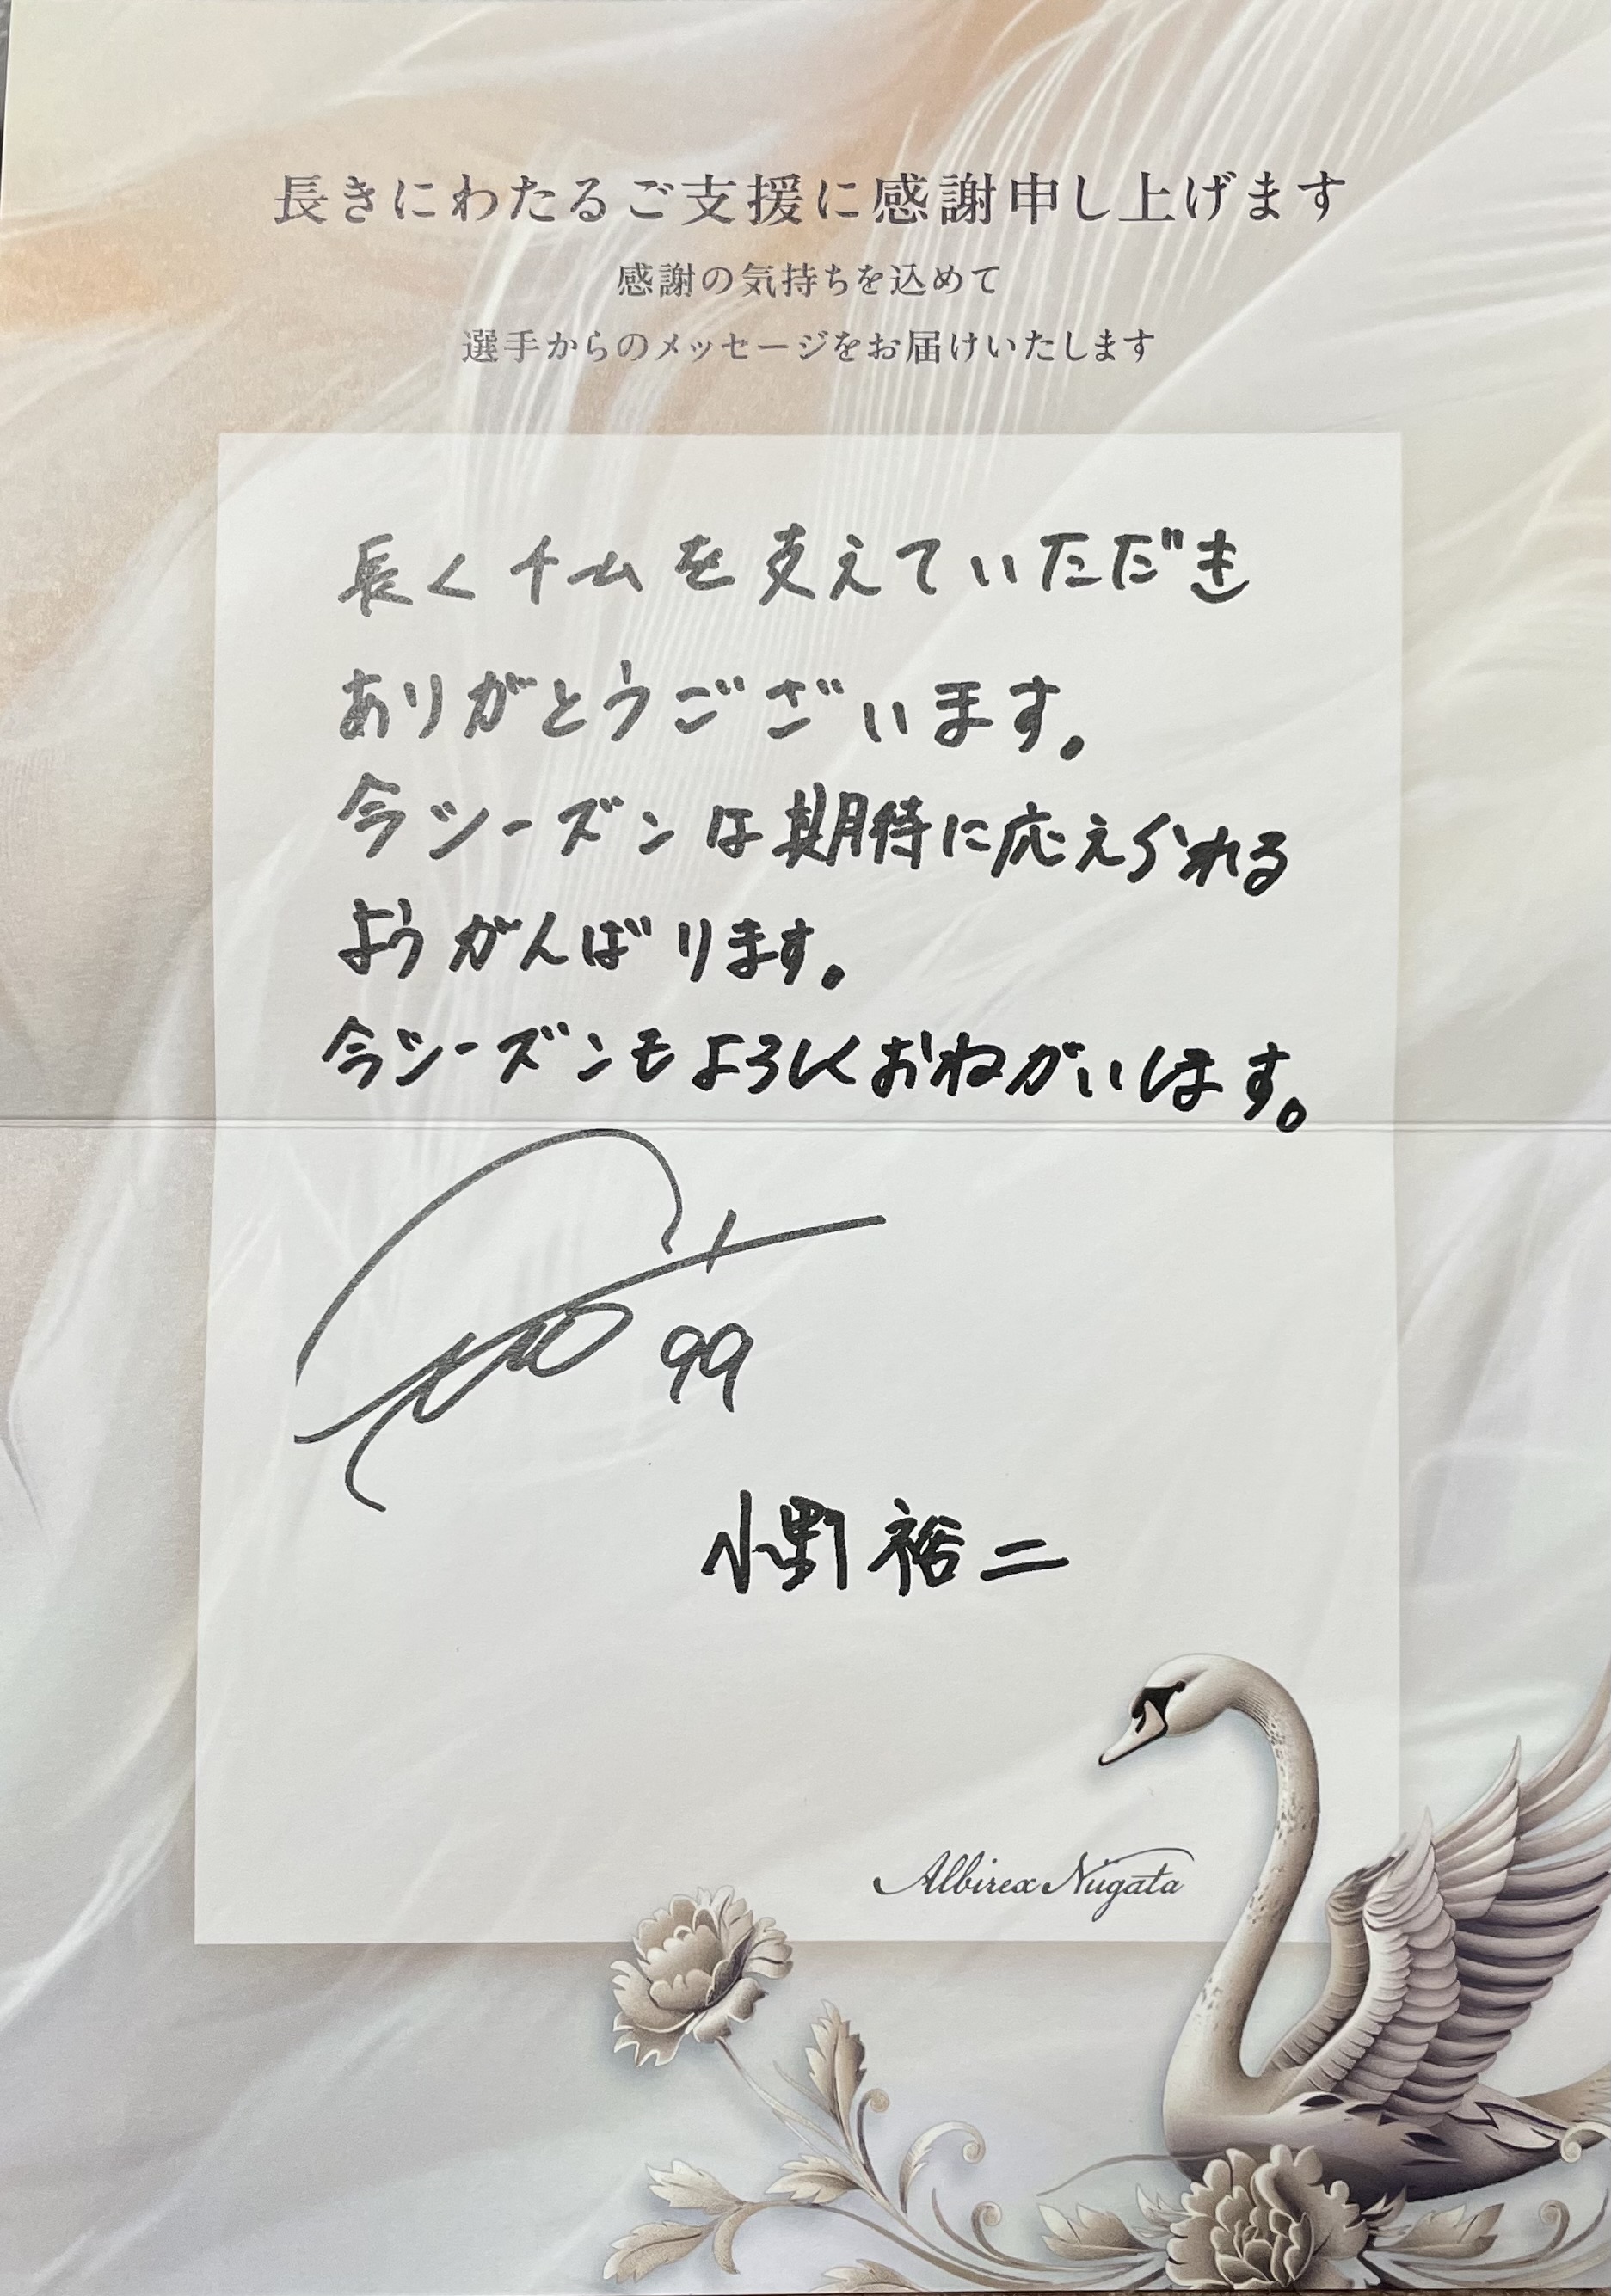 長きにわたるご支援に感謝申し上げます
感謝の気持ちを込めて
選手からのメッセージをお届けいたします
長くチームを支えていただき
ありがとうございます。
今シーズンは期待に応えられる
ようがんばります。
今シーズンもよろしくおねがいします。
99
小野裕二
Albirex Niigata